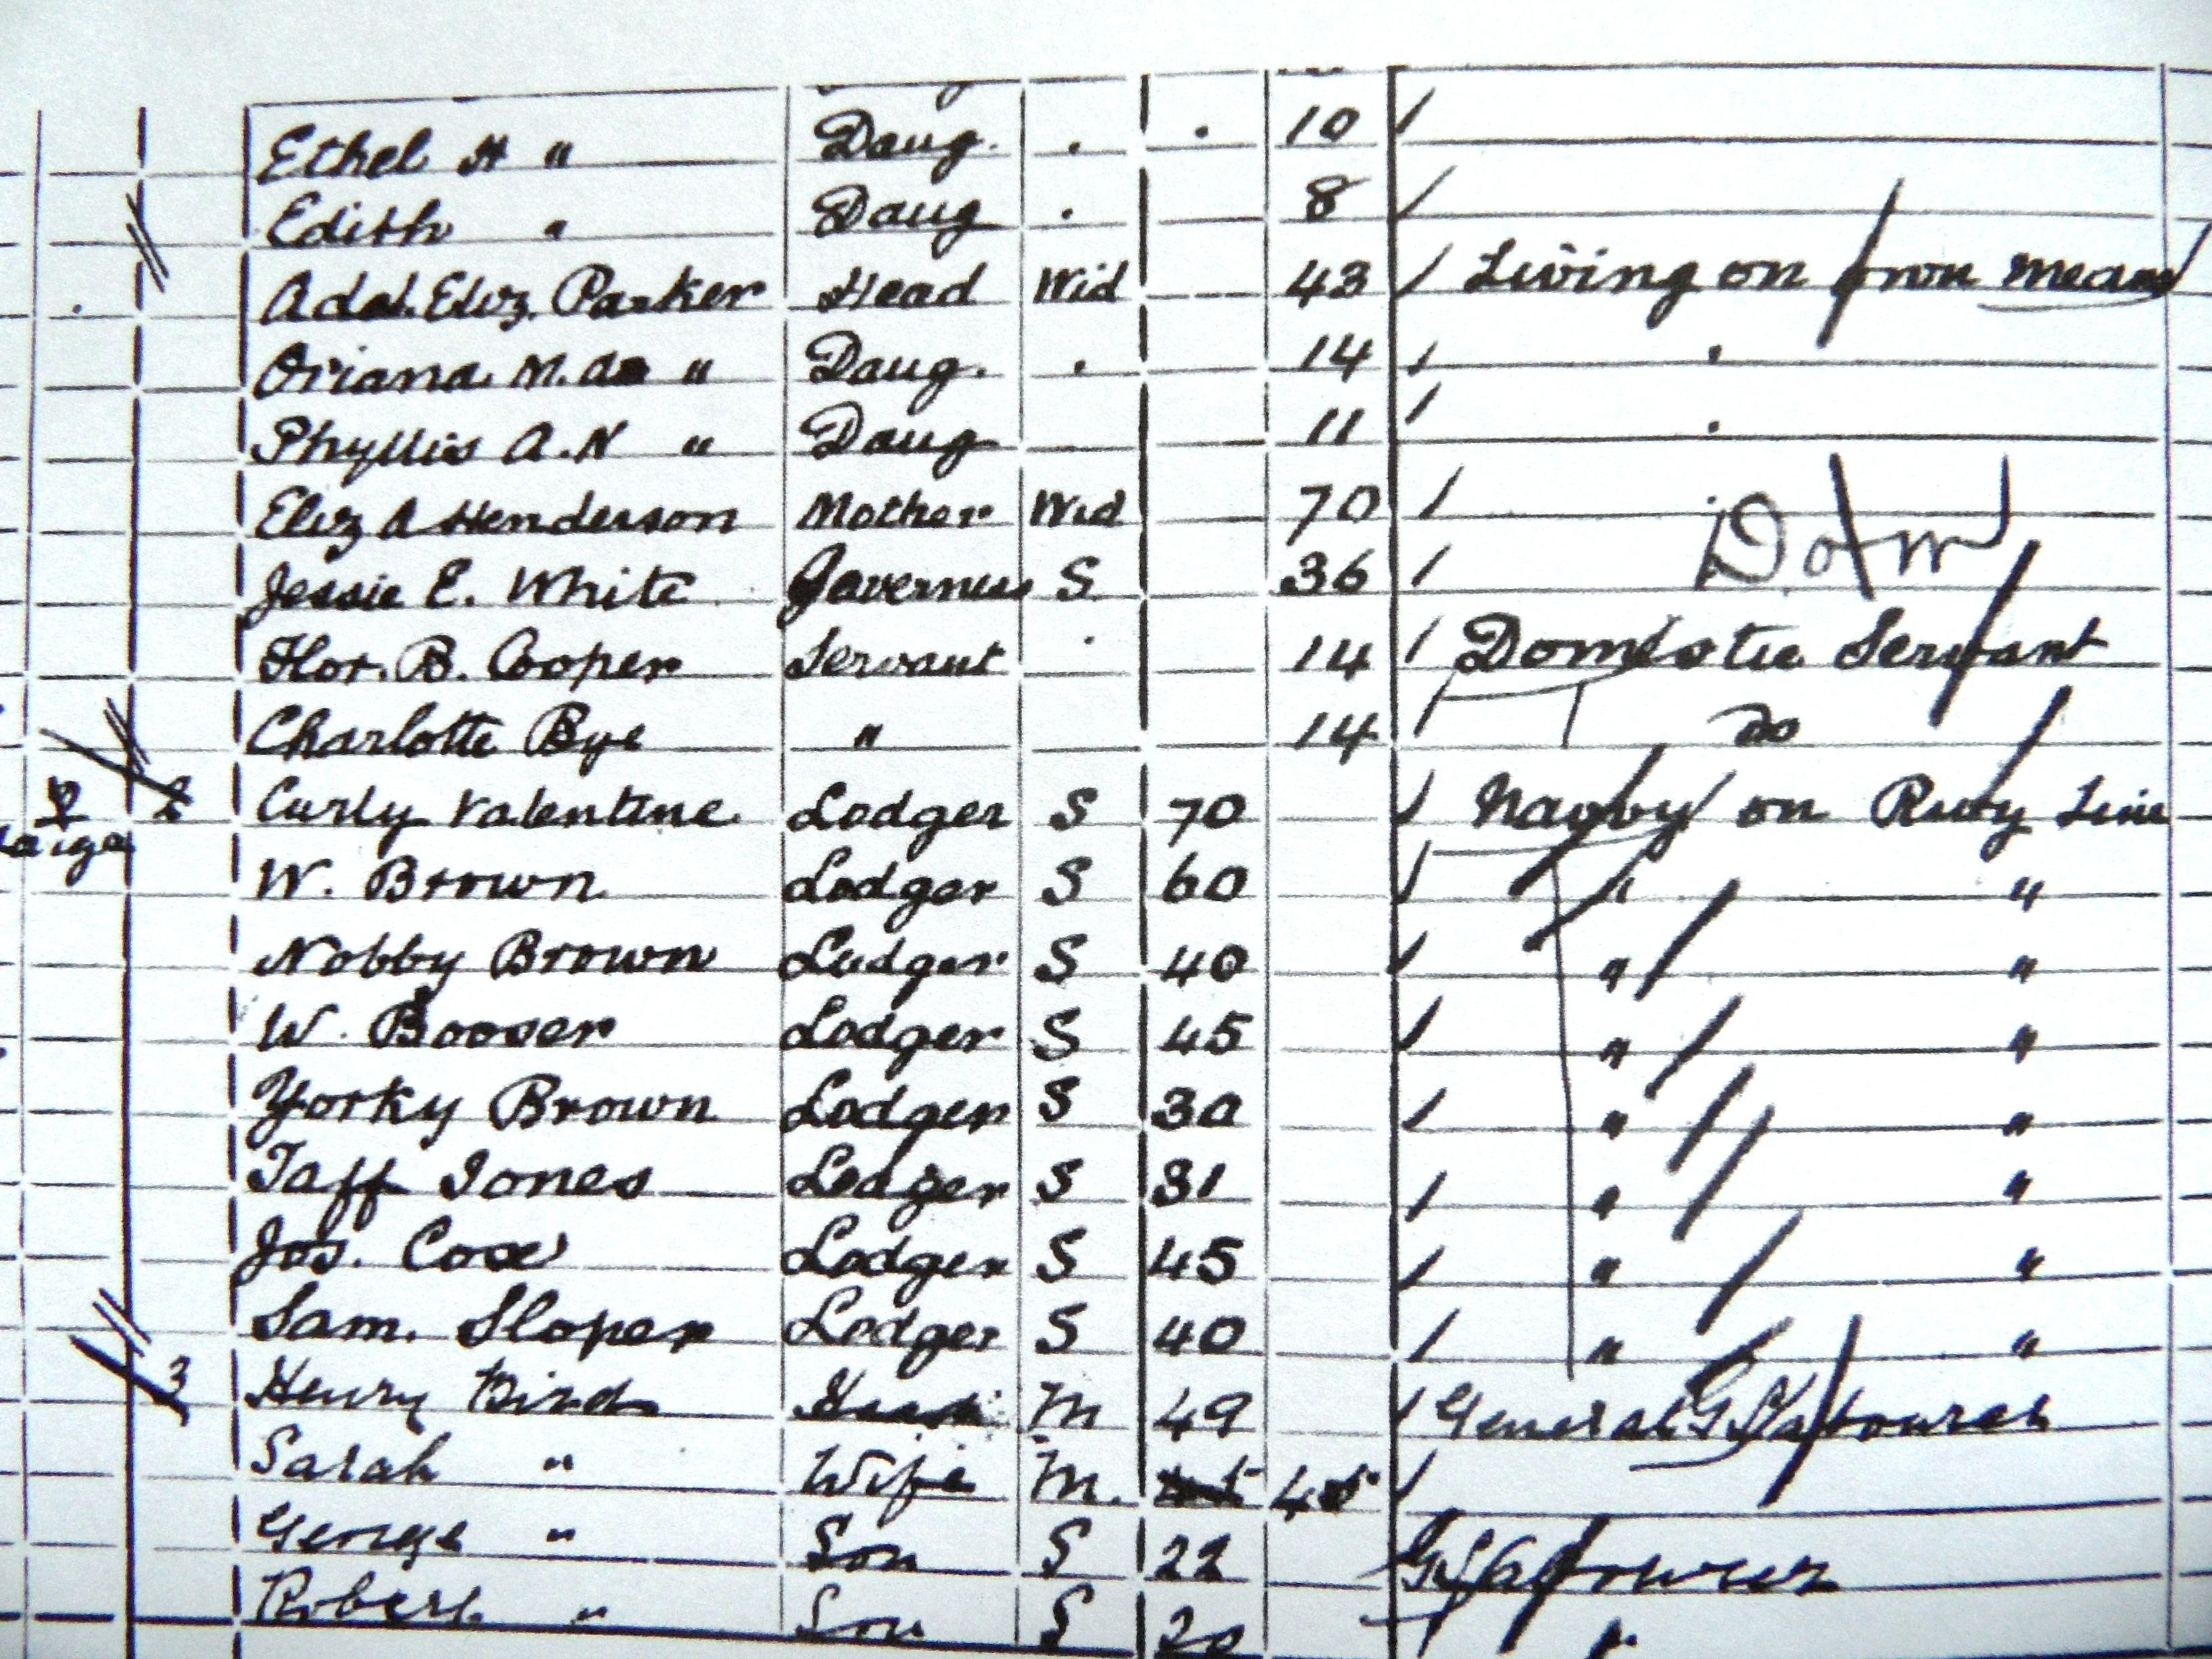 Ethel H " Daug. . . 10
Edith " Daug . 8
Adel. Eliz. Parker Head Wid 43 Living on own means
Oriana M. " Daug. . 14 "
Phyllis A. N " Daug 11 "
Eliz A Henderson Mother Wid 70
Jessie E. White Governess S 36 Dom
Flor. B. Cooper Servant . 14 Domestic Servant
Charlotte Bye " 14 do
2 Curly Valentine Lodger S 70 Navvy on Rwy Line
W. Brown Lodger S 60 " "
Nobby Brown Lodger S 40 " "
W. Booser Lodger S 45 " "
Yorky Brown Lodger S 30 " "
Taff Jones Lodger S 31 " "
Jos. Cox Lodger S 45 " "
Sam. Sloper Lodger S 40 " "
3 Henry Bird Head M 49 General Labourer
Sarah " Wife M. 45
George " Son S 22 Labourer
Robert " Son S 20 "